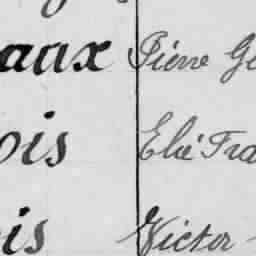 aux Pierre Ge
ois Elie Fra
is Victor